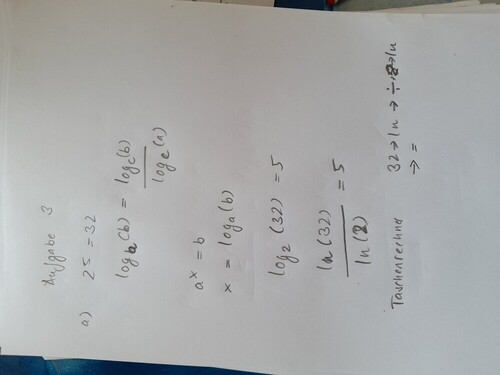 Aufgabe 3
a) 2⁵ = 32
logₐ(b) = log_c(b) / log_c(a)
aˣ = b
x = logₐ(b)
log₂(32) = 5
ln(32) / ln(2) = 5
Taschenrechner 32 → ln → ÷ 2 → ln
→ =